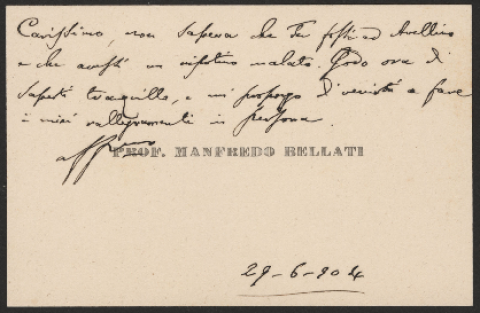 Carissimo, non sapeva che Tu fossi ad Avellino
e che avessi un nipotino malato. Godo ora di
saperti tranquillo, e mi propongo di venirti a fare
i miei rallegramenti in persona.
aff.mo
PROF. MANFREDO BELLATI
29-6-904